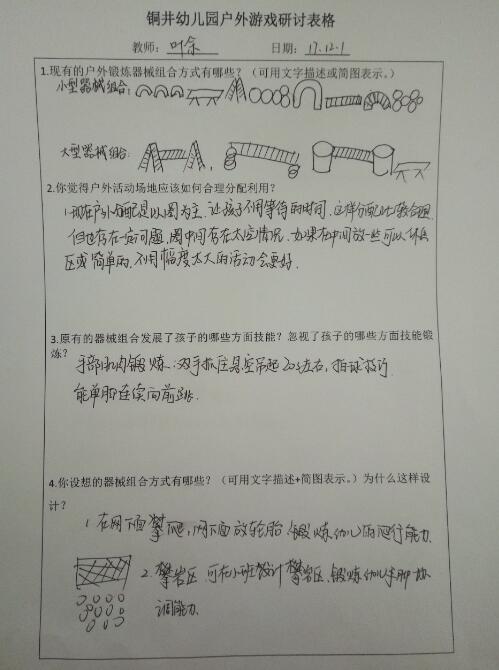 铜井幼儿园户外游戏研讨表格
教师: 叶余 日期: 17.12.1
1.现有的户外锻炼器械组合方式有哪些?(可用文字描述或简图表示。)
小型器械组合:
大型器械组合:
2.你觉得户外活动场地应该如何合理分配利用?
1.现在户外分配是以圈为主,让孩子不用等待的时间,这样分配比较合理
但也存在一定问题,圈中间存在太空情况,如果在中间放一些可以休息
区或简单的,不用幅度太大的活动会更好.
3.原有的器械组合发展了孩子的哪些方面技能?忽视了孩子的哪些方面技能锻
炼?
手部肌肉锻炼:双手抓住悬空吊起20s左右,拍球技巧
能单脚连续向前跳.
4.你设想的器械组合方式有哪些?(可用文字描述+简图表示。)为什么这样设
计?
1.在网下面攀爬,网下面放轮胎,锻炼幼儿的爬行能力.
2.攀岩区,可在小班设计攀岩区,锻炼幼儿手脚协
调能力.